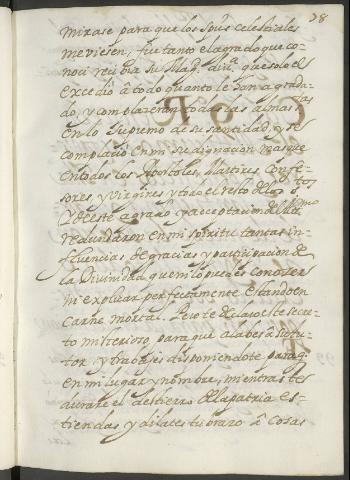 28
mirase para que los Spus celestiales
me viesen, fue tanto el agrado que co-
noci recivia su Magd. divina que solo el
excedio a todo quanto le han agrada-
do, y complazeran todas las almas
en lo supremo de su santidad, y se
complacio en mi su dignacion mas que
en todos los Apostoles, Martires, Confe-
sores, y Virgines y todo el resto de los stos
y de este agrado y acceptacion del Altmo
redundaron en mi spiritu tantas in-
fluencias de gracias y participacion de
la Divinidad que ni lo puedes conozer
ni explicar perfectamente estando en
carne mortal. Pero te declaro este secre-
to misterioso, para que alabes a su Au-
tor y trabajes disponiendote para q
en mi lugar y nombre, mientras te
durare el destierro de la patria es-
tiendas y dilates tu brazo a cosas